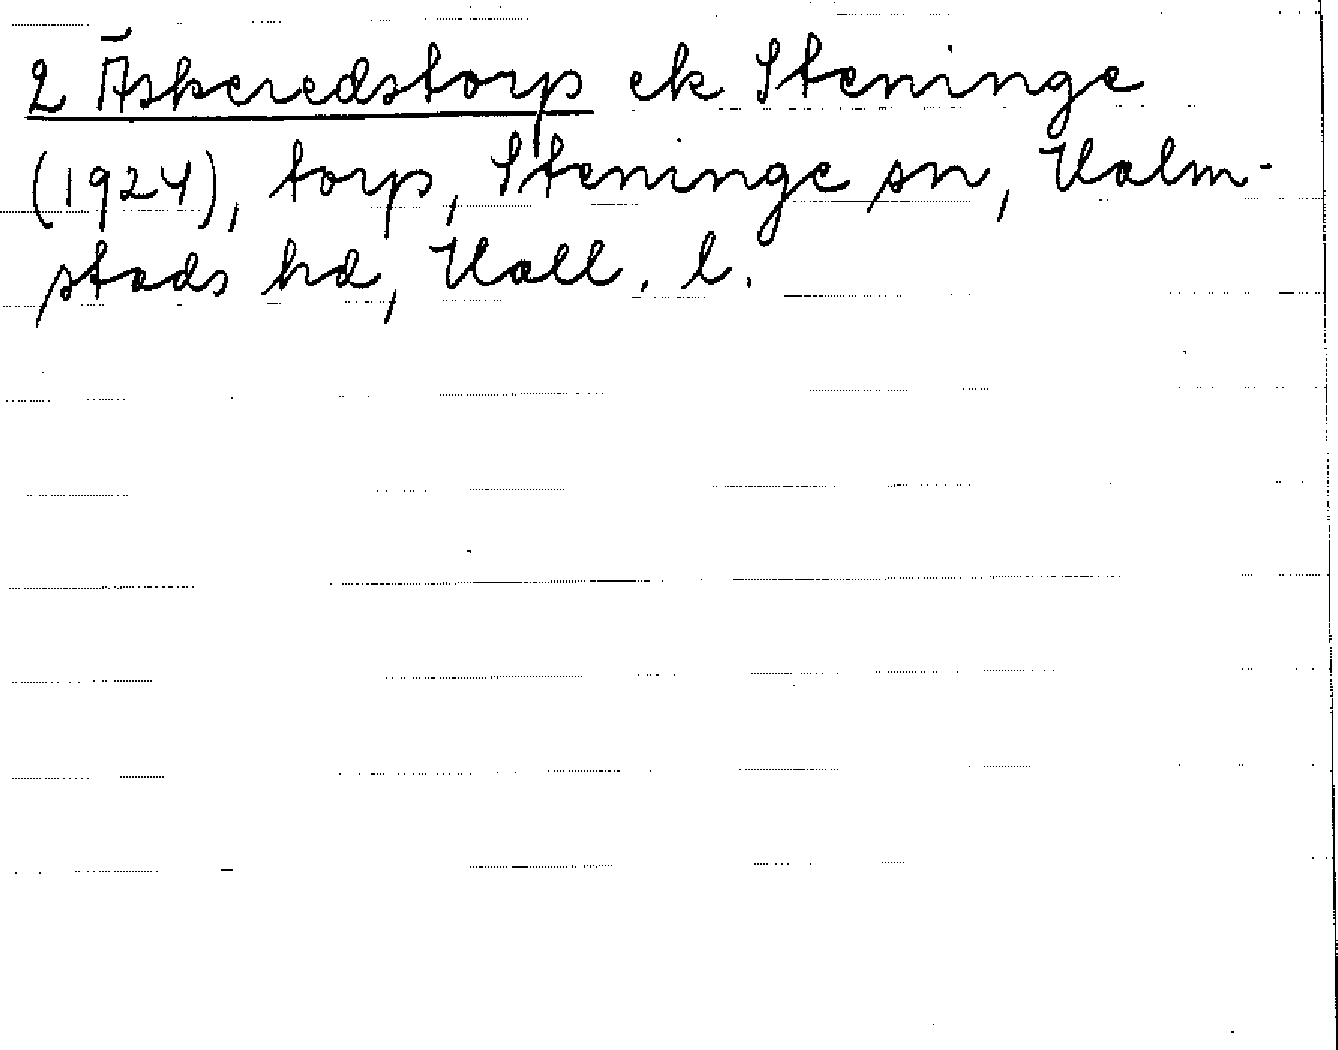 2 Äskeredstorp ek Steninge
(1924), torp, Steninge sn, Halm-
stads hd, Hall. l.